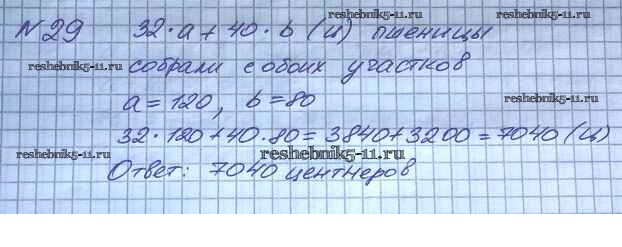 N 29 32·a + 40·b (ц) пшеницы
reshebnik5-11.ru
reshebnik5-11.ru
собрали с обоих участков
reshebnik5-11.ru
a = 120, b = 80
reshebnik5-11.ru
32·120 + 40·80 = 3840 + 3200 = 7040 (ц)
reshebnik5-11.ru
reshebnik5-11.ru
Ответ: 7040 центнеров
reshebnik5-11.ru